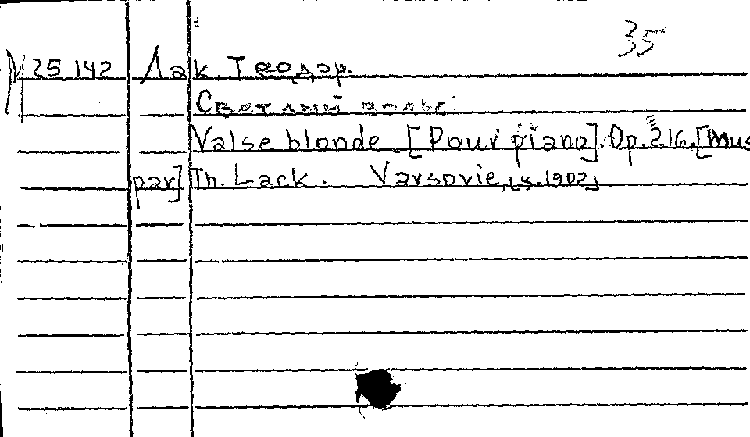 35
25.142 Лак, Теодор.
Светлый вальс.
Valse blonde. [Pour piano]. Op. 216. [Mus
par] Th. Lack. Varsovie, [s. 1902]